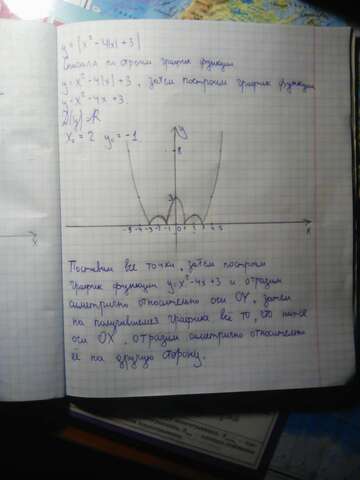 y = |x² - 4|x| + 3|
Сначала построим график функции
y = x² - 4|x| + 3, затем построим график функции
y = x² - 4x + 3
D(y) = R
x₀ = 2 y₀ = -1
y
8
3
-5 -4 -3 -2 -1 0 1 2 3 4 5
x
x
Поставим все точки, затем построим
график функции y = x² - 4x + 3 и отразим
симетрично относительно оси OY, затем
на получившемся графике всё то, что ниже
оси OX, отразим симетрично относительно
её на другую сторону.